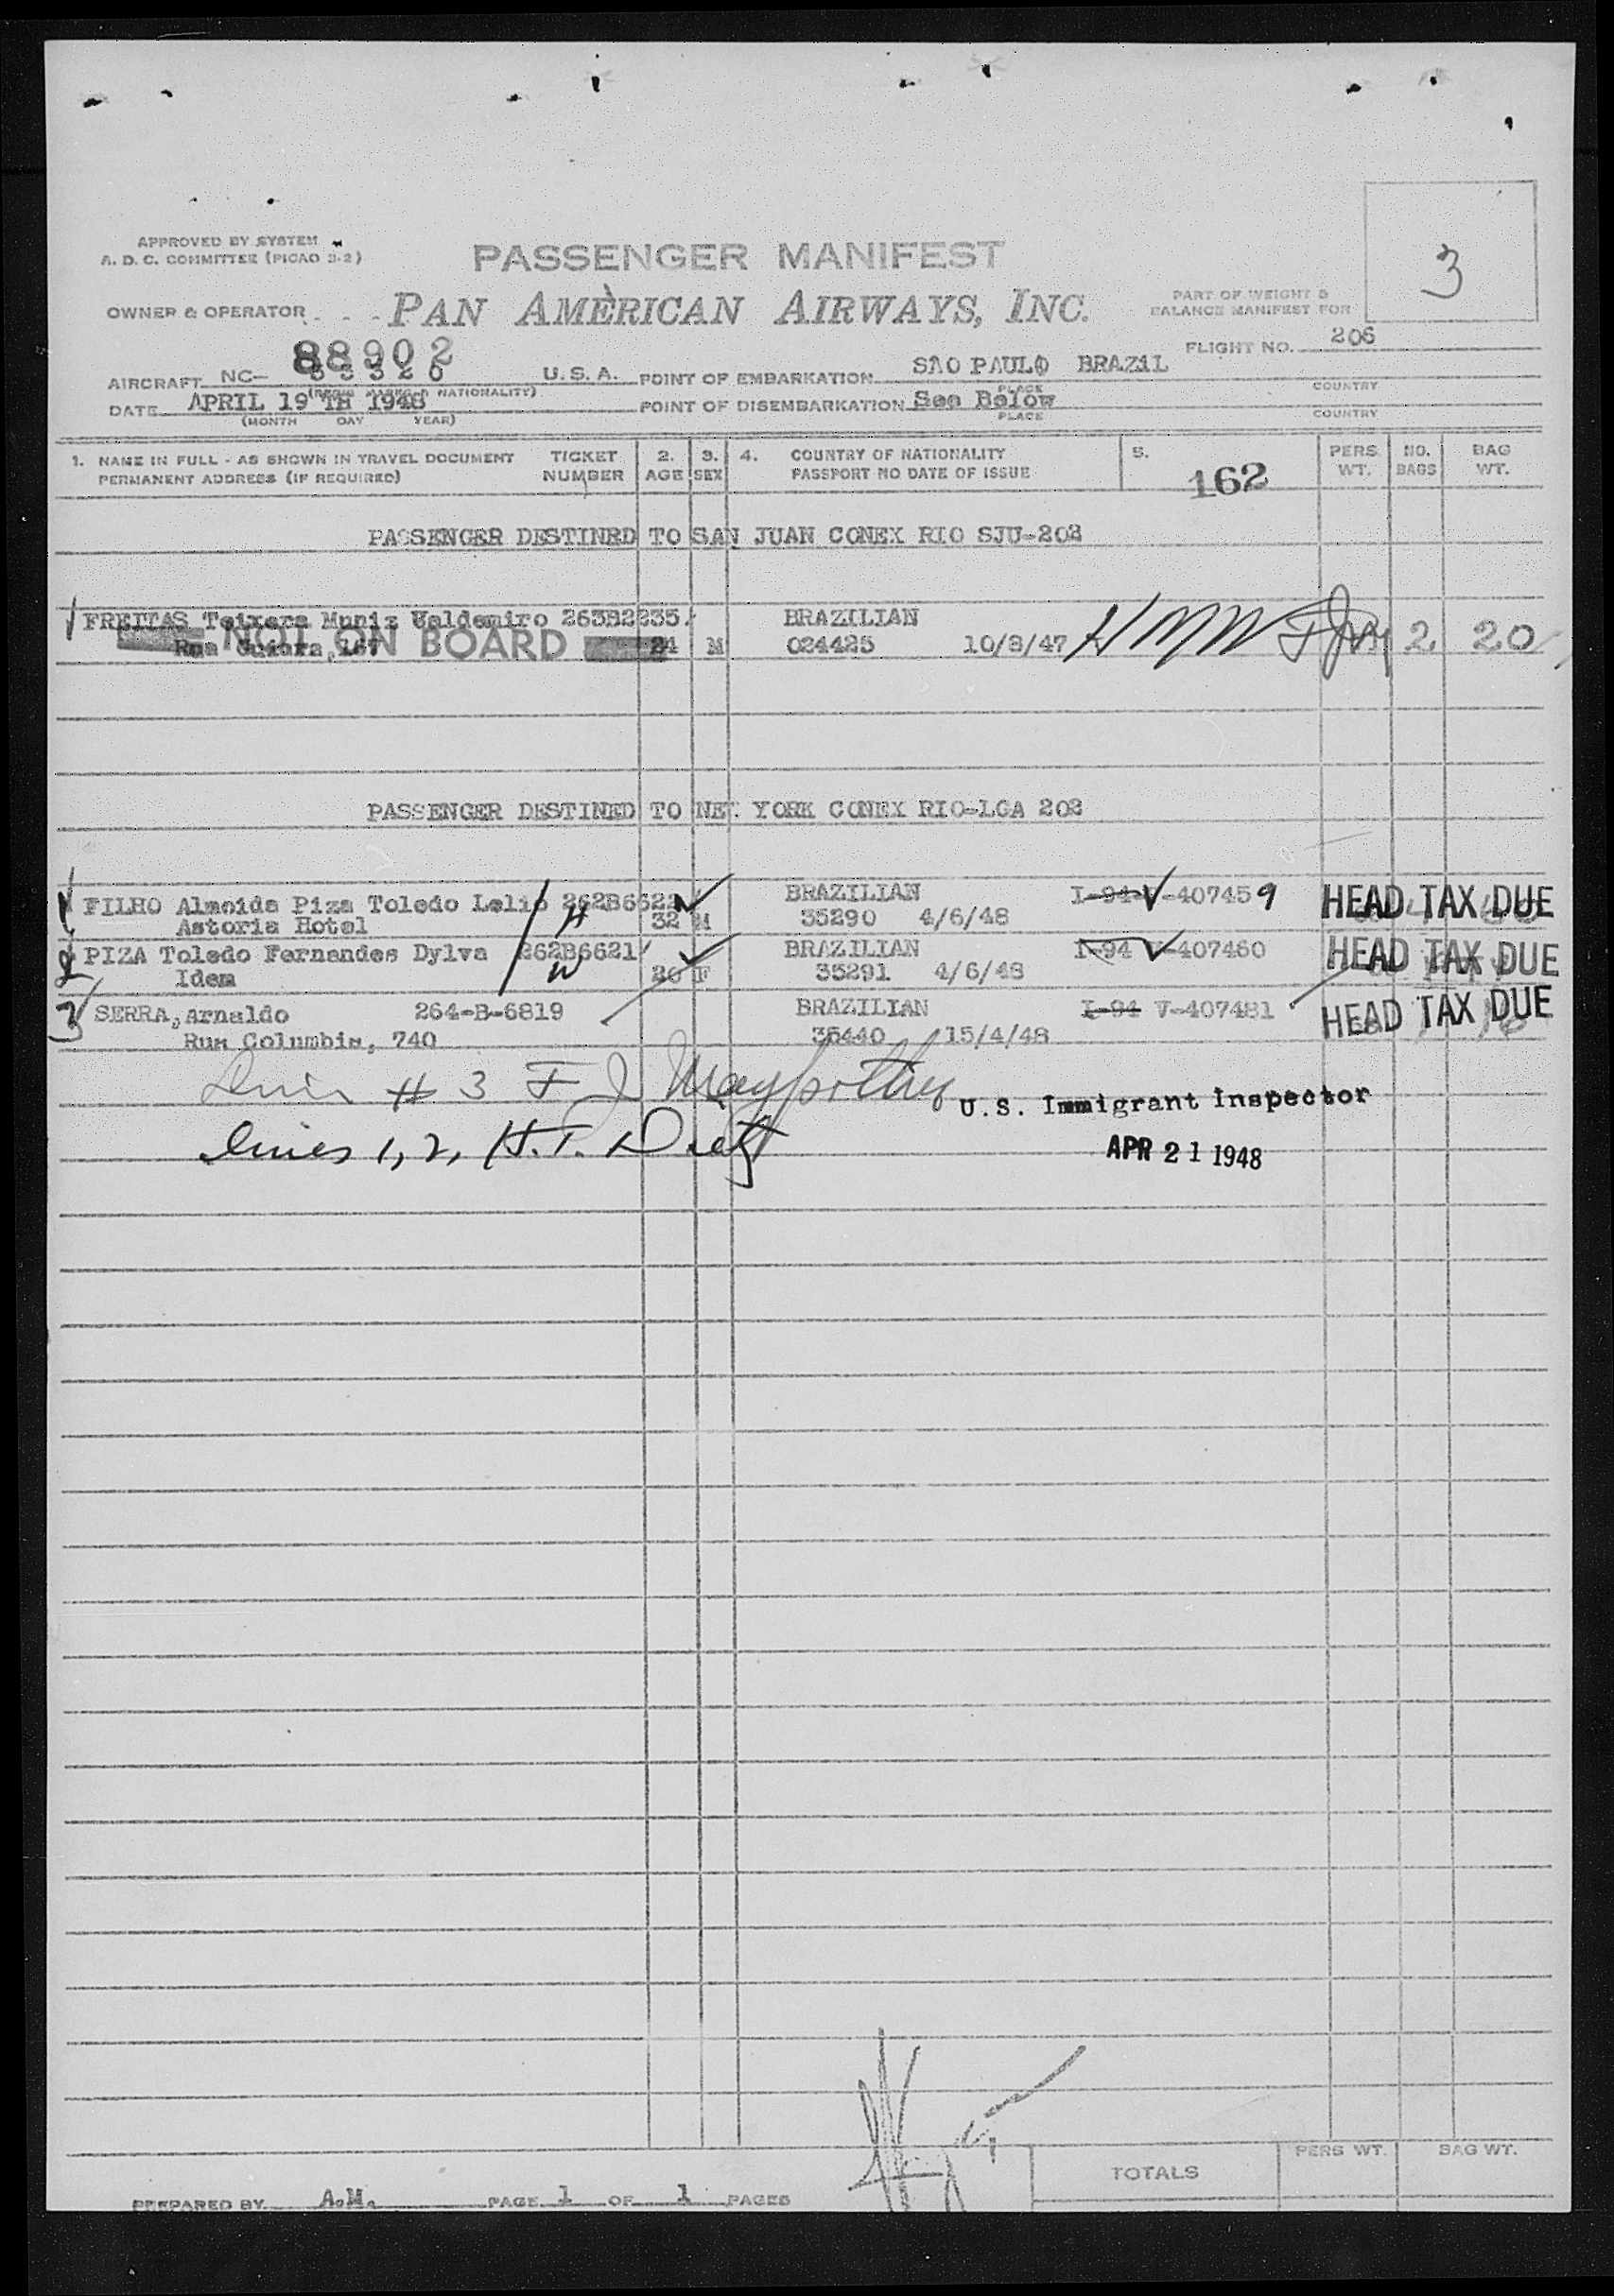 3
APPROVED BY SYSTEM
A. D. C. COMMITTEE (PICAO 3-2)
PASSENGER MANIFEST
OWNER & OPERATOR - - - PAN AMERICAN AIRWAYS, INC.
PART OF WEIGHT &
BALANCE MANIFEST FOR
FLIGHT NO. 206
88902
AIRCRAFT NC- U.S.A. POINT OF EMBARKATION SAO PAULO BRAZIL
NATIONALITY) PLACE COUNTRY
DATE APRIL 19 TH 1948 POINT OF DISEMBARKATION See Below
(MONTH DAY YEAR) PLACE COUNTRY
1. NAME IN FULL - AS SHOWN IN TRAVEL DOCUMENT TICKET 2. 3. 4. COUNTRY OF NATIONALITY 5. PERS. NO. BAG
PERMANENT ADDRESS (IF REQUIRED) NUMBER AGE SEX PASSPORT NO DATE OF ISSUE 162 WT. BAGS WT.
PASSENGER DESTINED TO SAN JUAN CONEX RIO SJU-203
FREITAS Teixera Muniz Valdemiro 263B2235 BRAZILIAN
NOT ON BOARD
Rua 167 24 M 024425 10/8/47 2 20
PASSENGER DESTINED TO NEW YORK CONEX RIO-LGA 203
1 FILHO Almeida Piza Toledo Lelio 262B6622 BRAZILIAN I-94 V-407459 HEAD TAX DUE
Astoria Hotel H 32 M 35290 4/6/48
2 PIZA Toledo Fernandes Dylva 262B6621 BRAZILIAN I-94 V-407460 HEAD TAX DUE
Idem W 26 F 35291 4/6/48
3 SERRA, Arnaldo 264-B-6819 BRAZILIAN I-94 V-407481 HEAD TAX DUE
Rua Columbia, 740 35440 15/4/48
# 3 F J U.S. Immigrant Inspector
Lines 1, 2, H.T. APR 21 1948
TOTALS PERS WT. BAG WT.
PREPARED BY A.M. PAGE 1 OF 1 PAGES